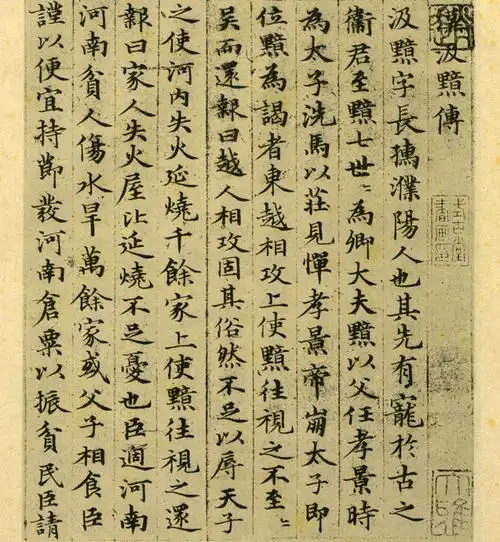 汲黯傳
汲黯字長孺濮陽人也其先有寵於古之
衞君至黯七世〻為卿大夫黯以父任孝景時
為太子洗馬以莊見憚孝景帝崩太子即
位黯為謁者東越相攻上使黯往視之不至〻
吳而還報曰越人相攻固其俗然不足以辱天子
之使河内失火延燒千餘家上使黯往視之還
報曰家人失火屋比延燒不足憂也臣過河南
河南貧人傷水旱萬餘家或父子相食臣
謹以便宜持節發河南倉粟以振貧民臣請